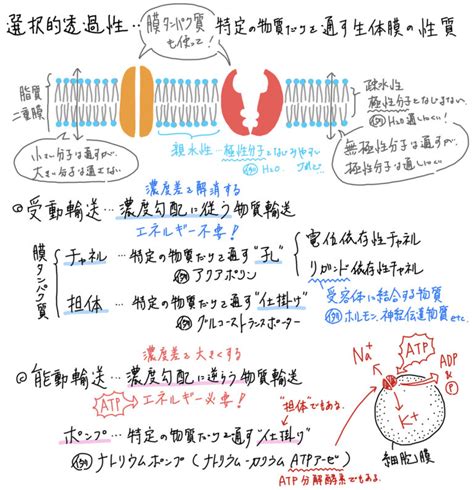 選択的透過性…特定の物質だけを通す生体膜の性質
膜タンパク質
も使って!
脂質
二重膜
小さい分子は通すが、
大きい分子は通さない
疎水性
極性分子となじまない
例 H₂O通しにくい!
無極性分子は通すが、
極性分子は通しにくい
親水性…極性分子となじみやすい
例 H₂O
濃度差を解消する
◎受動輸送…濃度勾配に従う物質輸送
エネルギー不要!
膜タンパク質
チャネル…特定の物質だけを通す"孔"
例 アクアポリン
電位依存性チャネル
リガンド依存性チャネル
受容体に結合する物質
例 ホルモン、神経伝達物質etc.
担体…特定の物質だけを通す"仕掛け"
例 グルコーストランスポーター
濃度差を大きくする
◎能動輸送…濃度勾配に逆らう物質輸送
ATP エネルギー必要!
"担体"でもある。
ポンプ…特定の物質だけを通す"仕掛け"
例 ナトリウムポンプ(ナトリウム-カリウムATPアーゼ)
ATP分解酵素でもある。
Na⁺
ATP
ADP
&
P
K⁺
細胞膜